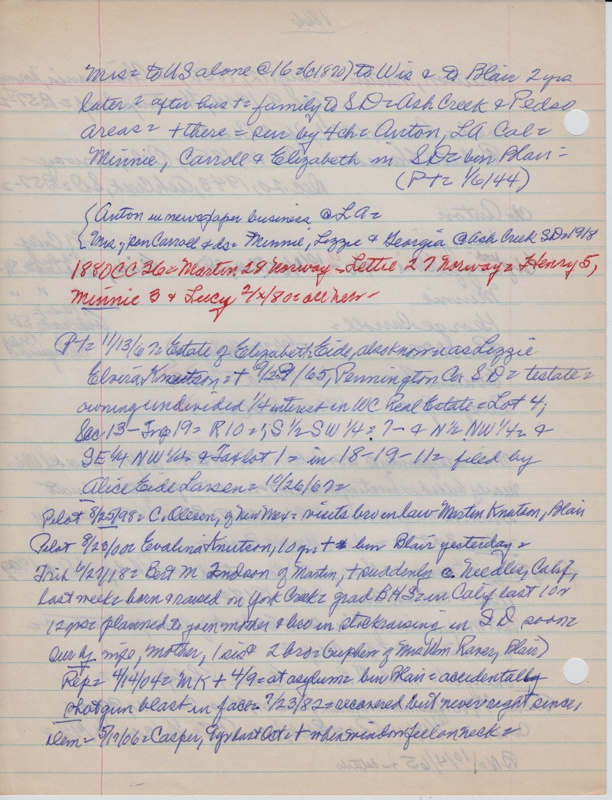 Mrs = to US alone @ 16 = (c1870) to Wis & to Blair 2 yrs
later = after hus + = family to SD = Ash Creek & Pedso
areas = + there = sur by 4 ch = Anton, LA Cal =
Minnie, Carroll & Elizabeth in SD = bur Blair =
(Pt = 1/6/44)
{Anton in newspaper business @ LA =
{Mrs, son Carroll & ds = Minnie, Lizzie & Georgia @ Ash Creek SD = 1918
1880 CC 36 = Martin 28 Norway = Lettie 27 Norway = Henry 5,
Minnie 3 & Lucy 2/x/80 = all here -
Pt = 11/13/67 = Estate of Elizabeth Eide, also known as Lizzie
Elvira Knutson = + 6/29/65, Pennington Co SD = testate =
owning undivided 1/4 interest in WC Real Estate = Lot 4,
Sec 13 - Tnp 19 = R 10 = ; S 1/2 SW 1/4 = 7 - & N 1/2 NW 1/4 = &
SE 1/4 NW 1/4 = & Lot 1 = in 18-19-11 = filed by
Alice Eide Larsen = 10/26/67 =
Pilot 8/25/98 = C. Oleson, of New Mex = visits bro in law Martin Knutson, Blair
Pilot 8/23/00 = Evalina Knutson, 10 m, + bur Blair yesterday =
Trib 6/27/18 = Bert M of Martin, + suddenly @ Needles, Calif,
last week = born & raised on York Creek = grad BHS = in Calif last 10 or
12 yrs = planned to join mother & bro in stockraising in SD soon =
sur by wife, mother, 1 sis & 2 bro = (nephew of Mrs Wm Raney, Blair)
Rep = 4/14/04 = MK + 4/9 = at asylum = bur Blair = accidentally
shotgun blast in face = 7/23/82 = recovered but never right since,
Dem = 5/17/06 = Casper, last Oct = + when window fell on neck =